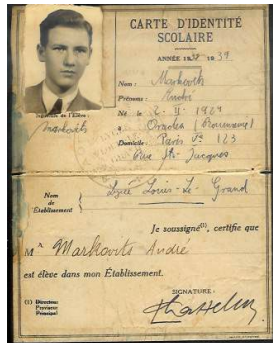 CARTE D'IDENTITÉ
SCOLAIRE
ANNÉE 1938-1939
Nom : Markovits
Prénoms : André
Né le
à Oradea (Roumanie)
Domicile : Paris Ve 123
Rue St-Jacques
Signature de l'Élève :
Markovits
Nom
de
l'Établissement
Lycée Louis-Le-Grand
Je soussigné(1), certifie que
M Markovits André
est élève dans mon Établissement.
SIGNATURE :
(1) Directeur
Proviseur
Principal